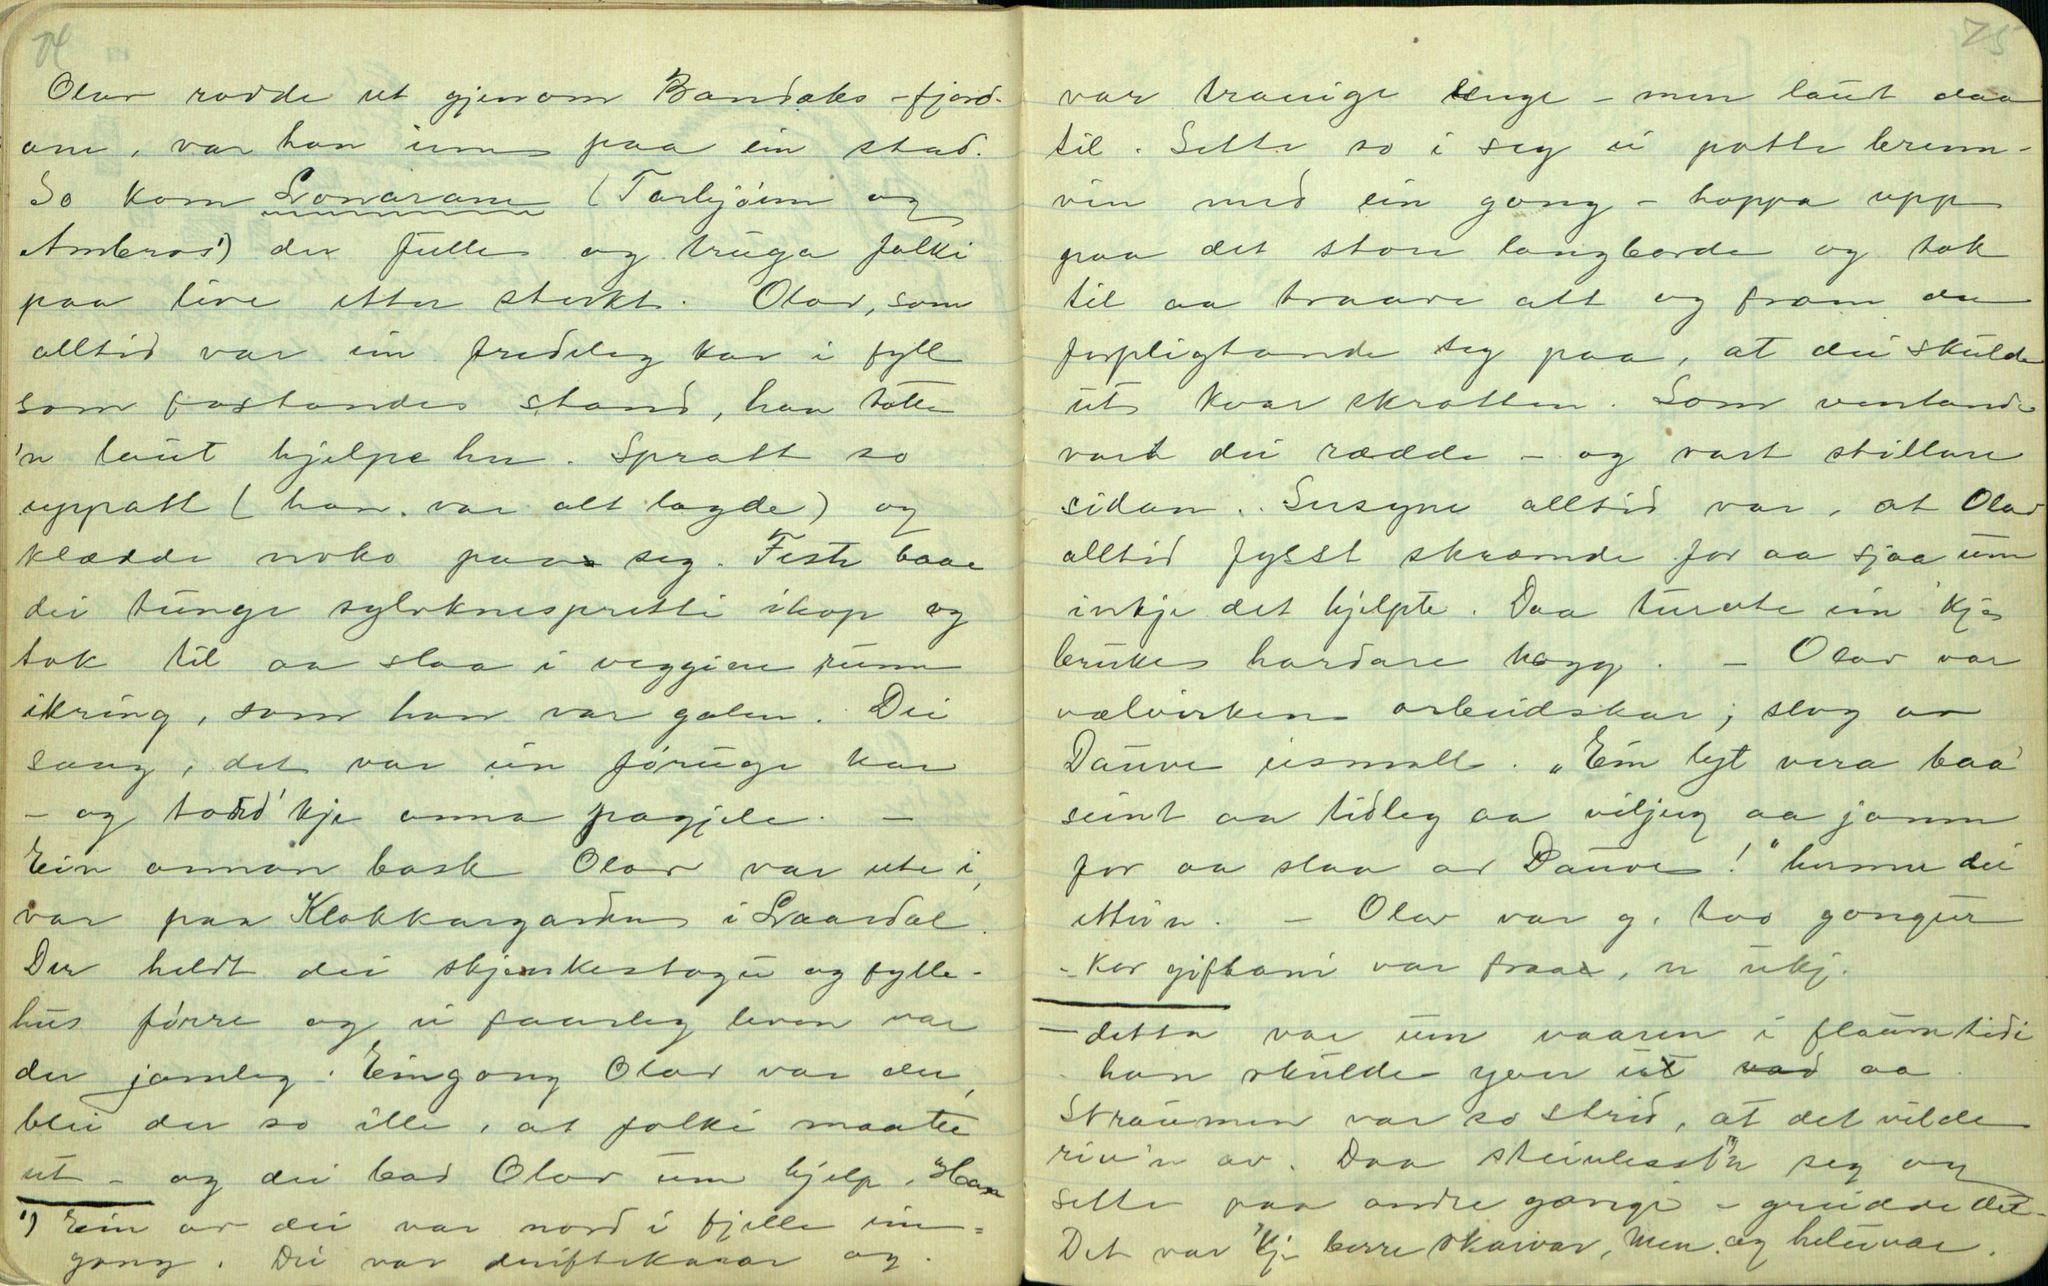 74
Olav rodde ut gjenom Bandaks-fjord-
ane, var han inne paa ein stad.
So kom Lonarane (Torbjönn og
Ambros¹) der fulle og truga folki
paa live etter sterkt. Olav, som
alltid var ein fredeleg kar i fyll
som fastande stand, han totte
'n laut hjelpe hu. Spratt so
uppatt (han var alt lagde) og
klædde noko paa seg. Feste baae
dei tunge sylvknespretti ihop og
tok til aa slaa i veggjene runn
ikring, som han var galen. Dei
saag, det var ein föruge kar
- og tord'kje anna pagjele. -
Ein annan bask Olav var ute i,
var paa Klokkargarden i Laardal.
Der heldt dei skjenkestogu og fylle-
hus förre og ei faarleg leven var
der jamleg. Eingong Olav var der,
blei der so ille, at folki maatte
ut - og dei bad Olav um hjelp. Han
¹) Ein av dei var nord i fjelle ein=
gong. Dei var driftekarar og.
75
var trauige lenge - men laut daa
til. Sette so i seg ei potte brenn-
vin med ein gong - hoppa upp
paa det store langborde og tok
til aa traave att og fram der
forpligtande seg paa, at dei skulde
ut kvar skrotten. Som ventande
vart dei rædde - og vart stillare
sidan. Susyne alltid var, at Olav
alltid fysst skræmde for aa sjaa um
inkje det hjelpte. Daa turvte ein 'kje
bruke hardare hogg. - Olav var
vælvirken arbeidskar; slog av
Dauve eismall. "Ein lyt vera baa'
seint aa tidleg aa viljug aa jamn
for aa slaa av Dauve!" herme dei
etti'n. - Olav var g. two gongur
- kor giftani var fraa, er ukj.
- detta var um vaaren i flaumtidi
han skulde yver ut aa
straumen var so strid, at det vilde
riv'n av. Daa steinlesst'n seg og
sette paa andre gongi - greidde det.
Det var 'kje berre skarvar, men og heteivar.